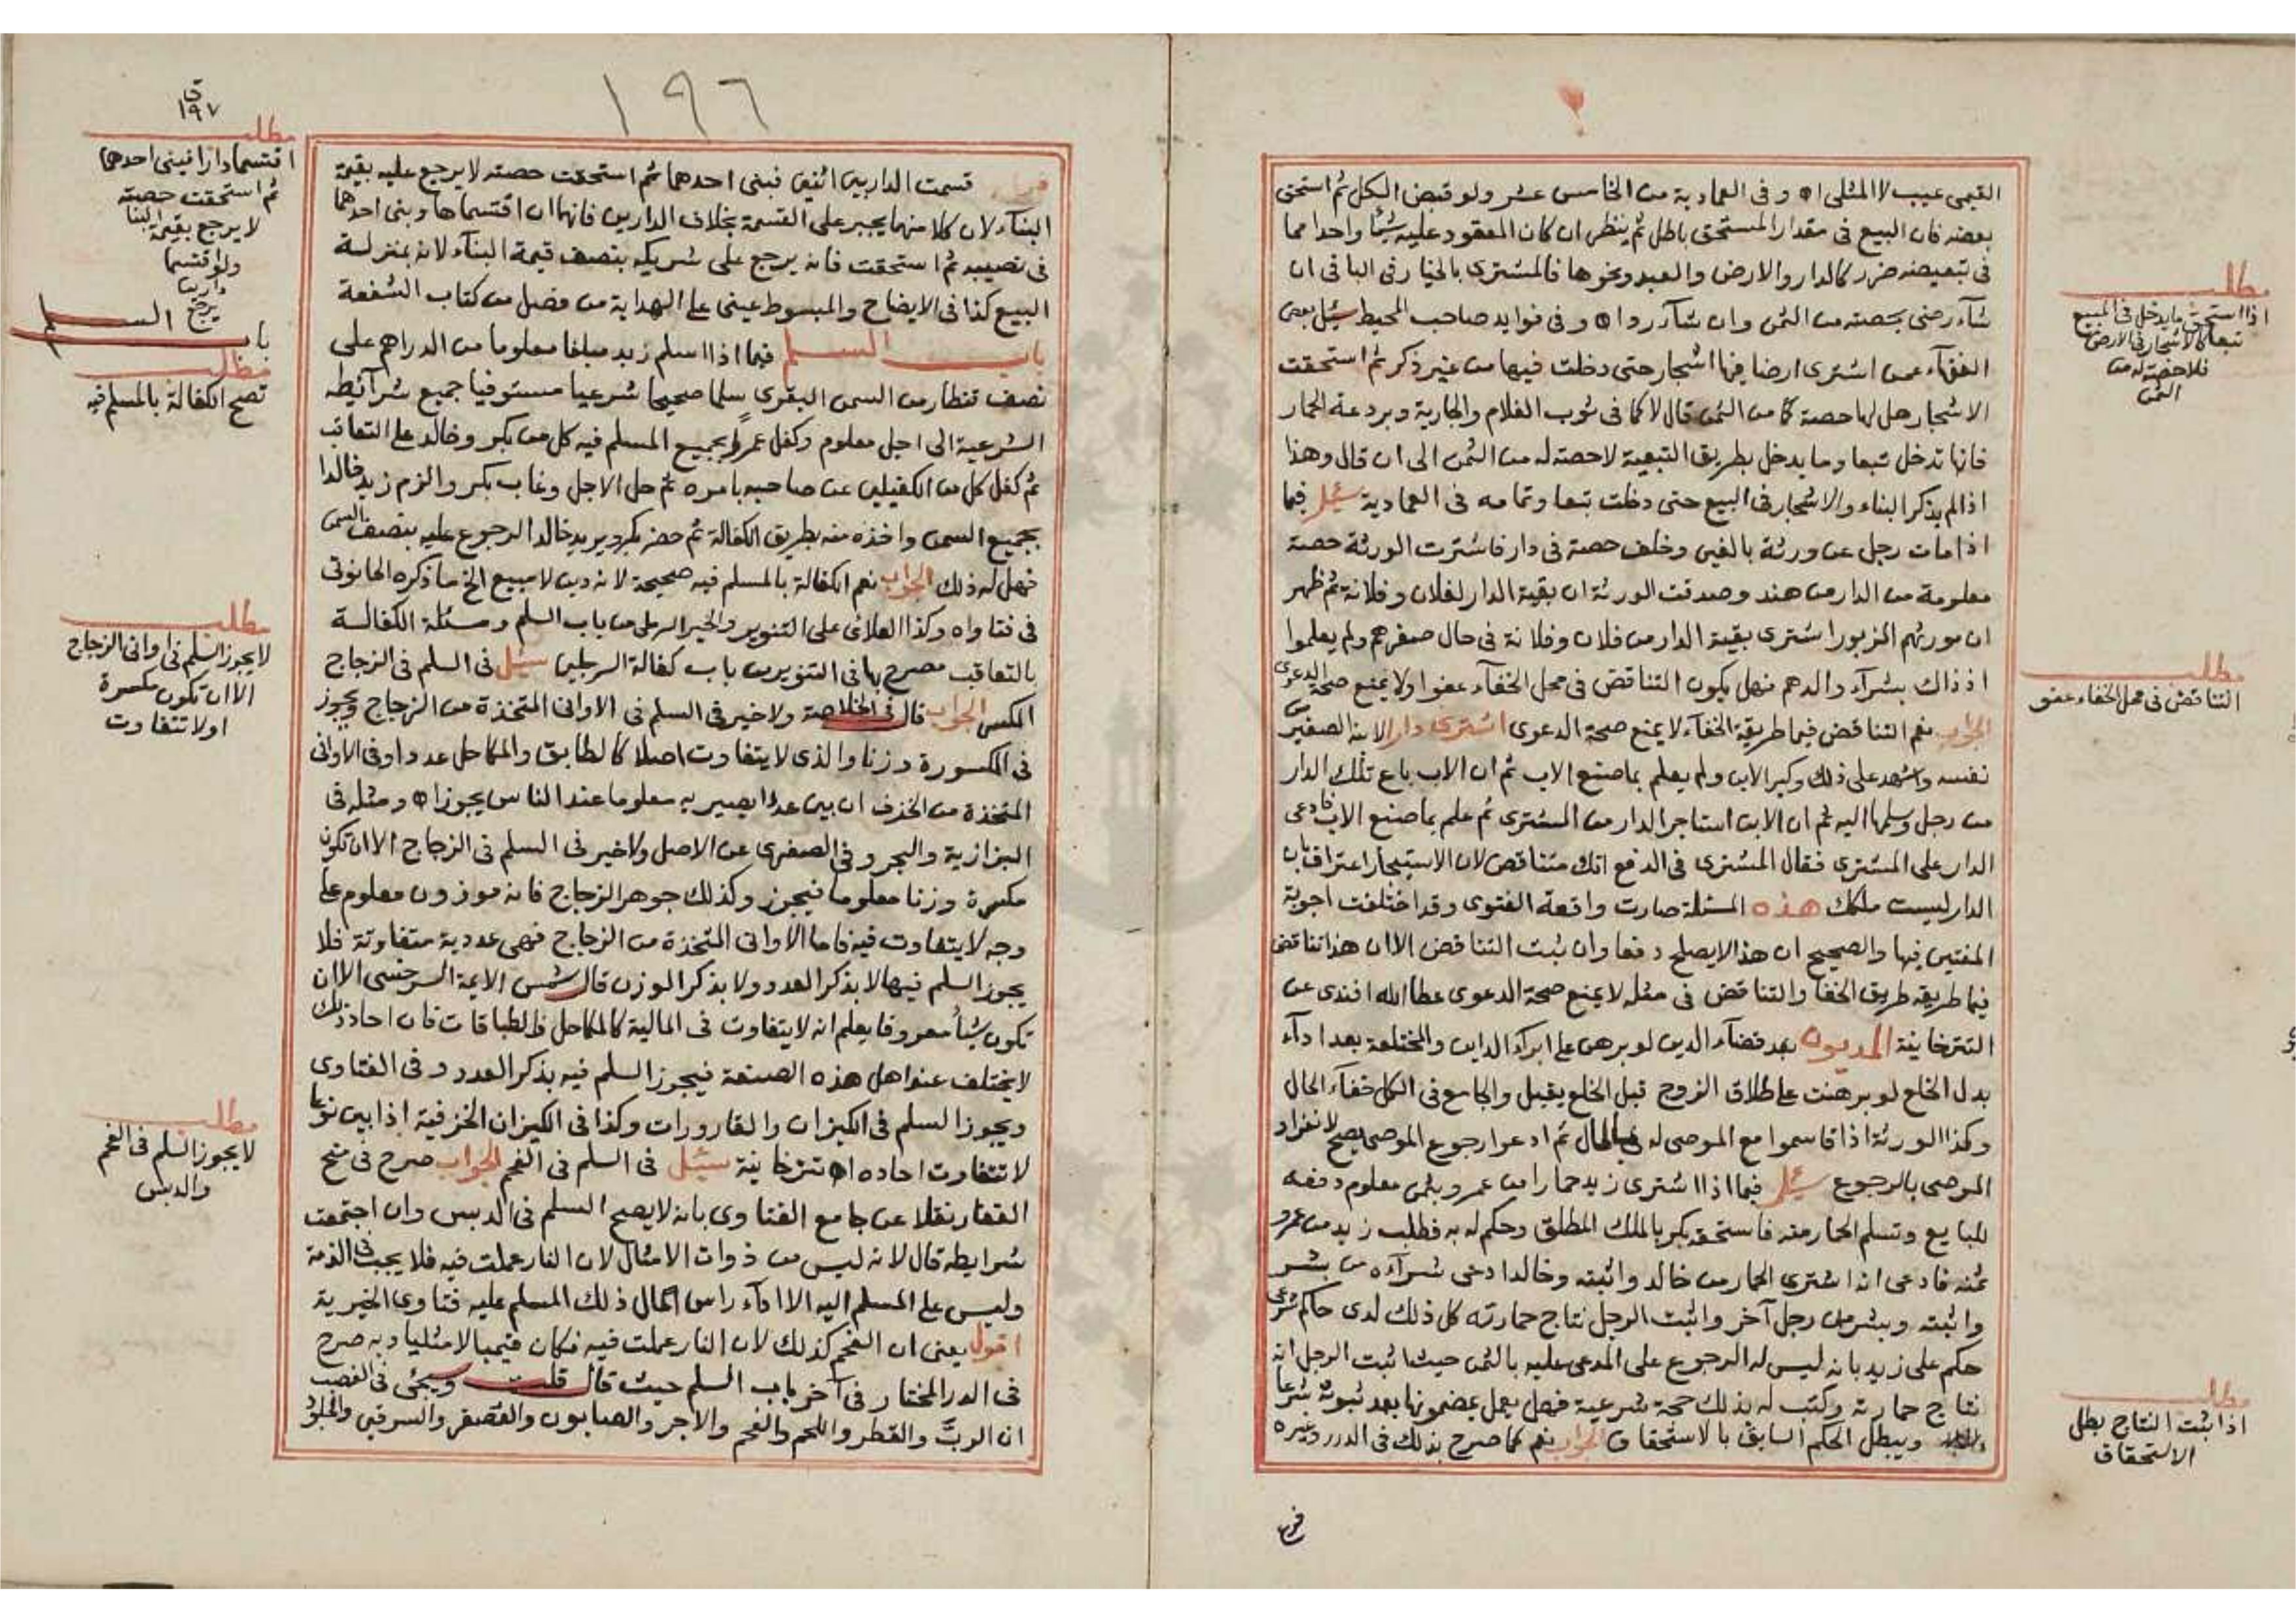 القيمى عيب لا المثلى اه وفى العمادية من الخامس عشر ولو قبض الكل ثم استحق
بعضه فان البيع فى مقدار المستحق باطل ثم ينظر ان كان المعقود عليه شيئا واحدا مما
فى تبعيضه ضرر كالدار والارض والعبد ونحوها فالمشترى بالخيار فى الباقى ان
شآء رضى بحصته من الثمن وان شآء رد اه وفى فوايد صاحب المحيط سئل بعض
الفقهآء عمن اشترى ارضا فيها اشجار حتى دخلت فيها من غير ذكر ثم استحقت
الاشجار هل لها حصة من الثمن قال لا كما فى ثوب الغلام والجارية وبردعة الحمار
فانها تدخل تبعا وما يدخل بطريق التبعية لا حصة له من الثمن الى ان قال وهذا
اذا لم يذكر البناء والاشجار فى البيع حتى دخلت تبعا وتمامه فى العمادية سئل فيما
اذا مات رجل عن ورثة بالغين وخلف حصة فى دار فاشترت الورثة حصة
معلومة من الدار من هند وصدقت الورثة ان بقية الدار لفلان وفلانة ثم ظهر
ان مورثهم المزبور اشترى بقية الدار من فلان وفلانة فى حال صغرهم ولم يعلموا
اذ ذاك بشرآء والدهم فهل يكون التناقض فى محل الخفآء عفوا ولا يمنع صحة الدعوى
الجواب نعم التناقض فيما طريقة الخفآء لا يمنع صحة الدعوى اشترى دارا لابنه الصغير من
نفسه واشهد على ذلك وكبر الابن ولم يعلم بما صنع الاب ثم ان الاب باع تلك الدار
من رجل وسلمها اليه ثم ان الابن استاجر الدار من المشترى ثم علم بما صنع الاب فادعى
الدار على المشترى فقال المشترى فى الدفع انك متناقض لان الاستيجار اعتراف بان
الدار ليست ملكك هذه المسئلة صارت واقعة الفتوى وقد اختلفت اجوبة
المفتين فيها والصحيح ان هذا لا يصلح دفعا وان ثبت التناقض الا ان هذا تناقض
فيما طريقه طريق الخفا والتناقض فى مثله لا يمنع صحة الدعوى عطا الله افندى عن
التترخانية المديون بعد قضآء الدين لو برهن على ابرآء الداين والمختلعة بعد ادآء
بدل الخلع لو برهنت على طلاق الزوج قبل الخلع يقبل والجامع فى الكل خفآء الحال
وكذا الورثة اذا قاسموا مع الموصى له فى المال ثم ادعوا رجوع الموصى يصح لانفراد
الموصى بالرجوع سئل فيما اذا اشترى زيد حمارا من عمرو بثمن معلوم دفعه
للبايع وتسلم الحمار منه فاستحقه بكر بالملك المطلق وحكم له به فطلب زيد من عمرو
ثمنه فادعى انه اشترى الحمار من خالد واثبته وخالد ادعى شرآءه من بشر
واثبته وبشر من رجل آخر واثبت الرجل نتاج حمارته كل ذلك لدى حاكم شرعى
حكم على زيد بانه ليس له الرجوع على المدعى عليه بالثمن حيث اثبت الرجل انه
نتاج حمارته وكتب له بذلك حجة شرعية فهل يعمل بمضمونها بعد ثبوته شرعا
ويبطل الحكم السابق بالاستحقاق الجواب نعم كما صرح بذلك فى الدرر وغيره
مطلب
اذا استحق ما يدخل فى المبيع
تبعا كالاشجار فى الارض
فلا حصة له من
الثمن
مطلب
التناقض فى محل الخفاء عفو
مطلب
اذا ثبت النتاج بطل
الاستحقاق
فرع
١٩٦
ق
١٩٧
فرع قسمت الدار بين اثنين فبنى احدهما ثم استحقت حصته لا يرجع عليه بقيمة
البنآء لان كلا منهما يجبر على القسمة بخلاف الدارين فانهما ان اقتسماها وبنى احدهما
فى نصيبه ثم استحقت فانه يرجع على شريكه بنصف قيمة البنآء لانه بمنزلة
البيع كذا فى الايضاح والمبسوط عينى على الهداية من فصل من كتاب الشفعة
باب السلم فيما اذا اسلم زيد مبلغا معلوما من الدراهم على
نصف قنطار من السمن البقرى سلما صحيحا شرعيا مستوفيا جميع شرآئطه
الشرعية الى اجل معلوم وكفل عمرًوا بجميع المسلم فيه كل من بكر وخالد على التعاقب
ثم كفل كل من الكفيلين عن صاحبه بامره ثم حل الاجل وغاب بكر والزم زيد خالدا
بجميع السمن واخذه منه بطريق الكفالة ثم حضر بكر ويريد خالد الرجوع عليه بنصف السمن
فهل له ذلك الجواب نعم الكفالة بالمسلم فيه صحيحة لانه دين لا مبيع الخ ما ذكره الحانوتى
فى فتاواه وكذا العلائى على التنوير والخير الرملى من باب السلم ومسئلة الكفالة
بالتعاقب مصرح بها فى التنوير من باب كفالة الرجلين سئل فى السلم فى الزجاج
المكسر الجواب قال فى الخلاصة ولا خير فى السلم فى الاوانى المتخذة من الزجاج ويجوز
فى المكسورة وزنا والذى لا يتفاوت اصلا كالطابق والمكاحل عددا وفى الاوانى
المتخذة من الخزف ان بين عددا يصير به معلوما عند الناس يجوز اه ومثله فى
البزازية والبحر وفى الصغرى عن الاصل ولا خير فى السلم فى الزجاج الا ان تكون
مكسرة وزنا معلوما فيجوز وكذلك جوهر الزجاج فانه موزون معلوم على
وجه لا يتفاوت فيه فاما الاوانى المتخذة من الزجاج فهى عددية متفاوتة فلا
يجوز السلم فيها لا بذكر العدد ولا بذكر الوزن قال شمس الايمة السرخسى الا ان
تكون شيأ معروفا يعلم انه لا يتفاوت فى المالية كالمكاحل والطباقات فان احاد ذلك
لا يختلف عند اهل هذه الصنعة فيجوز السلم فيه بذكر العدد وفى الفتاوى
ويجوز السلم فى الكيزان والقارورات وكذا فى الكيزان الخزفية اذا بين نوعا
لا تتفاوت احاده اه تترخانية سئل فى السلم فى الفحم الجواب صرح فى منح
الغفار نقلا عن جامع الفتاوى بانه لا يصح السلم فى الدبس وان اجتمعت
شرايطه قال لانه ليس من ذوات الامثال لان النار عملت فيه فلا يجب فى الذمة
وليس على المسلم اليه الا ادآء راس المال ذلك المسلم عليه فتاوى الخيرية
اقول يعنى ان الفحم كذلك لان النار عملت فيه فكان قيميا لا مثليا وبه صرح
فى الدر المختار فى آخر باب السلم حيث قال قلت ويجئ فى الغصب
ان الربّ والقطر واللحم والفحم والاجر والصابون والعصفر والسرقين والجلود
مطلب
اقتسما دارا فبنى احدهما
ثم استحقت حصته
لا يرجع بقيمة البنا
ولو اقتسما
دارين
يرجع
باب السلم
مطلب
تصح الكفالة بالمسلم فيه
مطلب
لا يجوز السلم فى اوانى الزجاج
الا ان تكون مكسرة
او لا تتفاوت
مطلب
لا يجوز السلم فى الفحم
والدبس